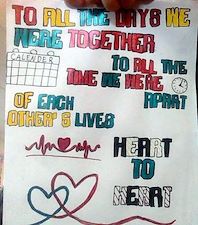 TO ALL THE DAYS WE
WERE TOGETHER
CALENDER
TO ALL THE
TIME WE WERE
APART
OF EACH
OTHER'S LIVES
HEART
TO
HEART